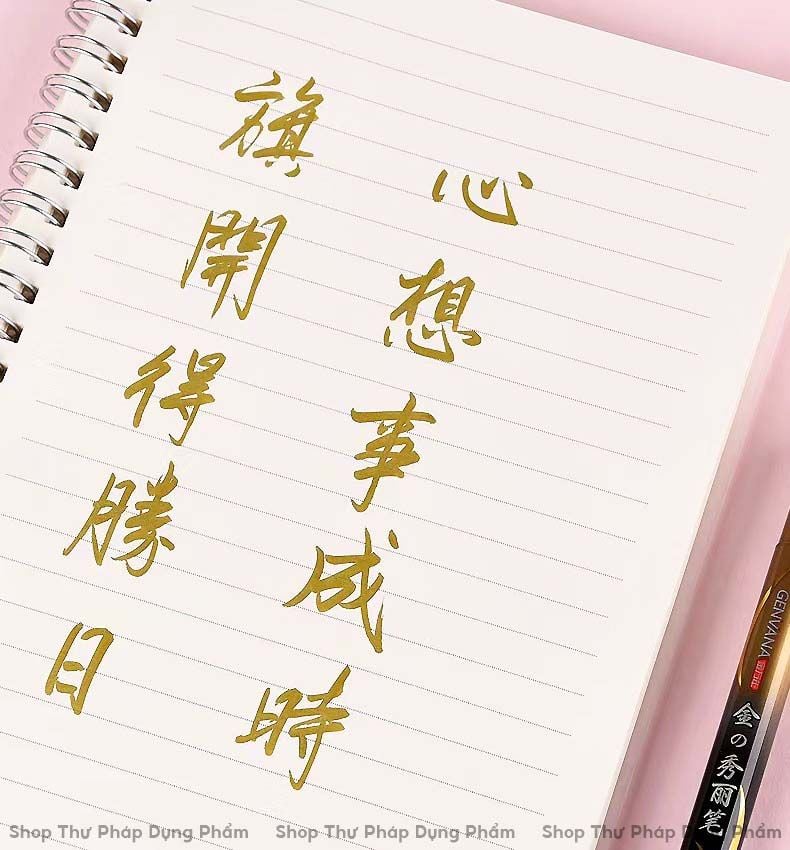 心想事成時
旗開得勝日
GENVANA
金の秀丽笔
Shop Thư Pháp Dụng Phẩm Shop Thư Pháp Dụng Phẩm Shop Thư Pháp Dụng Phẩm